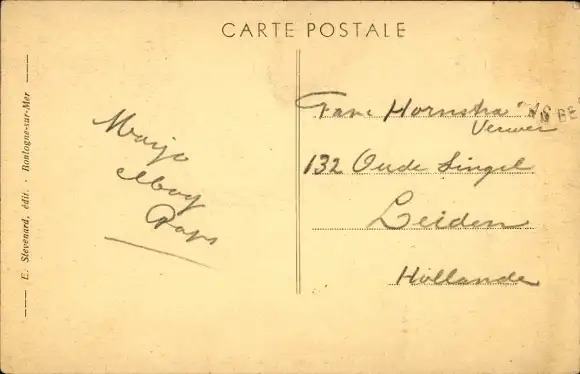 CARTE POSTALE
E. Stevenard, édit. · Boulogne-sur-Mer
Marjo
Fam. Hornstra
Verwer
132 Oude Singel
Leiden
Hollande